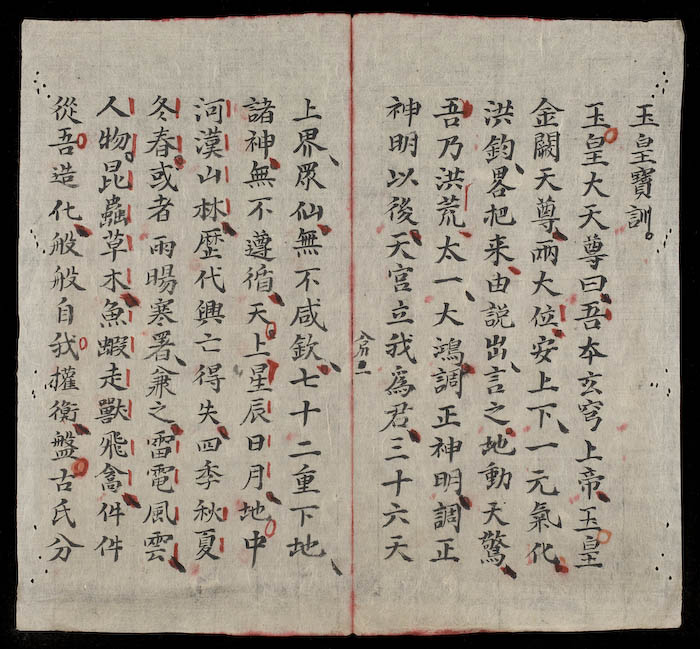 玉皇寶訓
玉皇大天尊曰吾本玄穹上帝玉皇
金闕天尊兩大位安上下一元氣化
洪鈞畧把来由說出言之地動天驚
吾乃洪荒太一大鴻調正神明調正
神明以後天宮立我爲君三十六天
上界眾仙無不咸欽七十二重下地
諸神無不遵循天上星辰日月地中
河漢山林歷代興亡得失四季秋夏
冬春或者雨暘寒暑兼之雷電風雲
人物昆蟲草木魚蝦走獸飛禽件件
從吾造化般般自我權衡盤古氏分